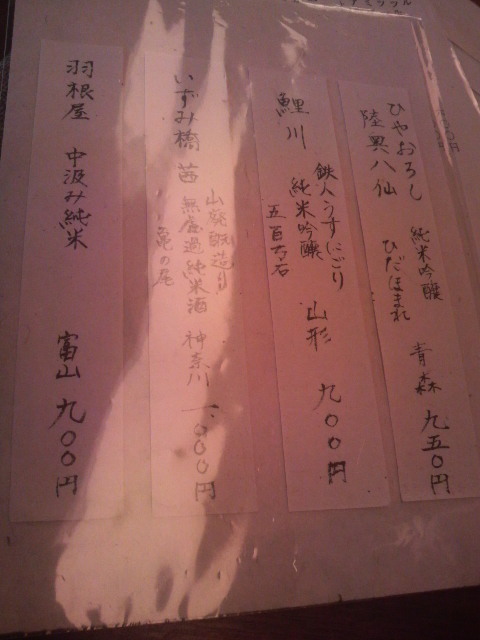 ひやおろし
陸奥八仙 純米吟醸 ひだほまれ 青森 九五〇円
鯉川 鉄人うすにごり
純米吟醸 山形 九〇〇円
五百万石
いずみ橋 茜 山廃酛造り
無濾過純米酒 神奈川 一、〇〇〇円
亀の尾
羽根屋 中汲み純米 富山 九〇〇円